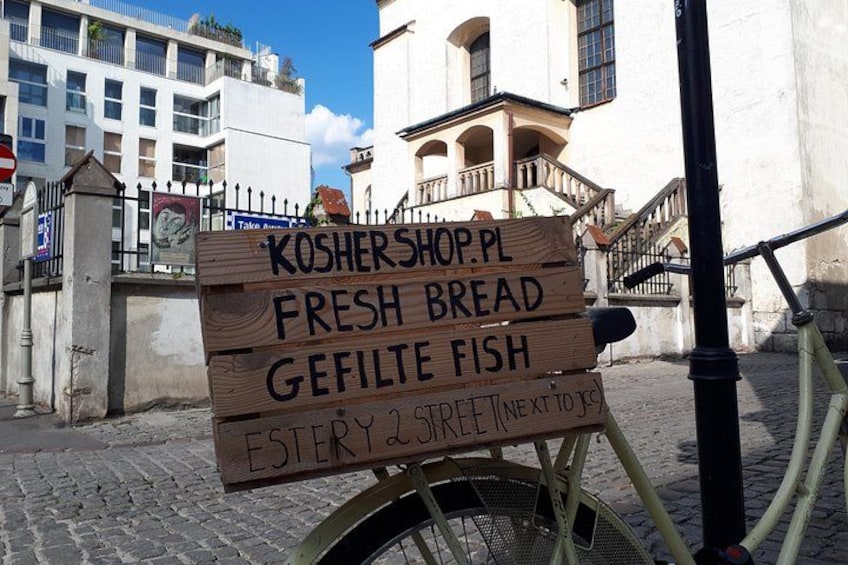 Take Away
KOSHERSHOP.PL
FRESH BREAD
GEFILTE FISH
ESTERY 2 STREET (NEXT TO JCC)